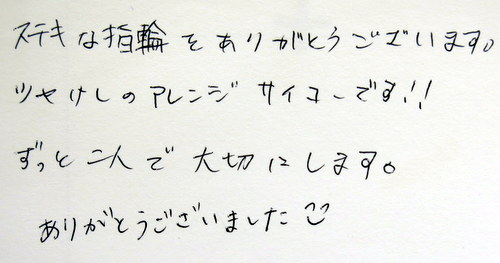 ステキな指輪をありがとうございます。
ツヤけしのアレンジ サイコーです!!
ずっと二人で大切にします。
ありがとうございました